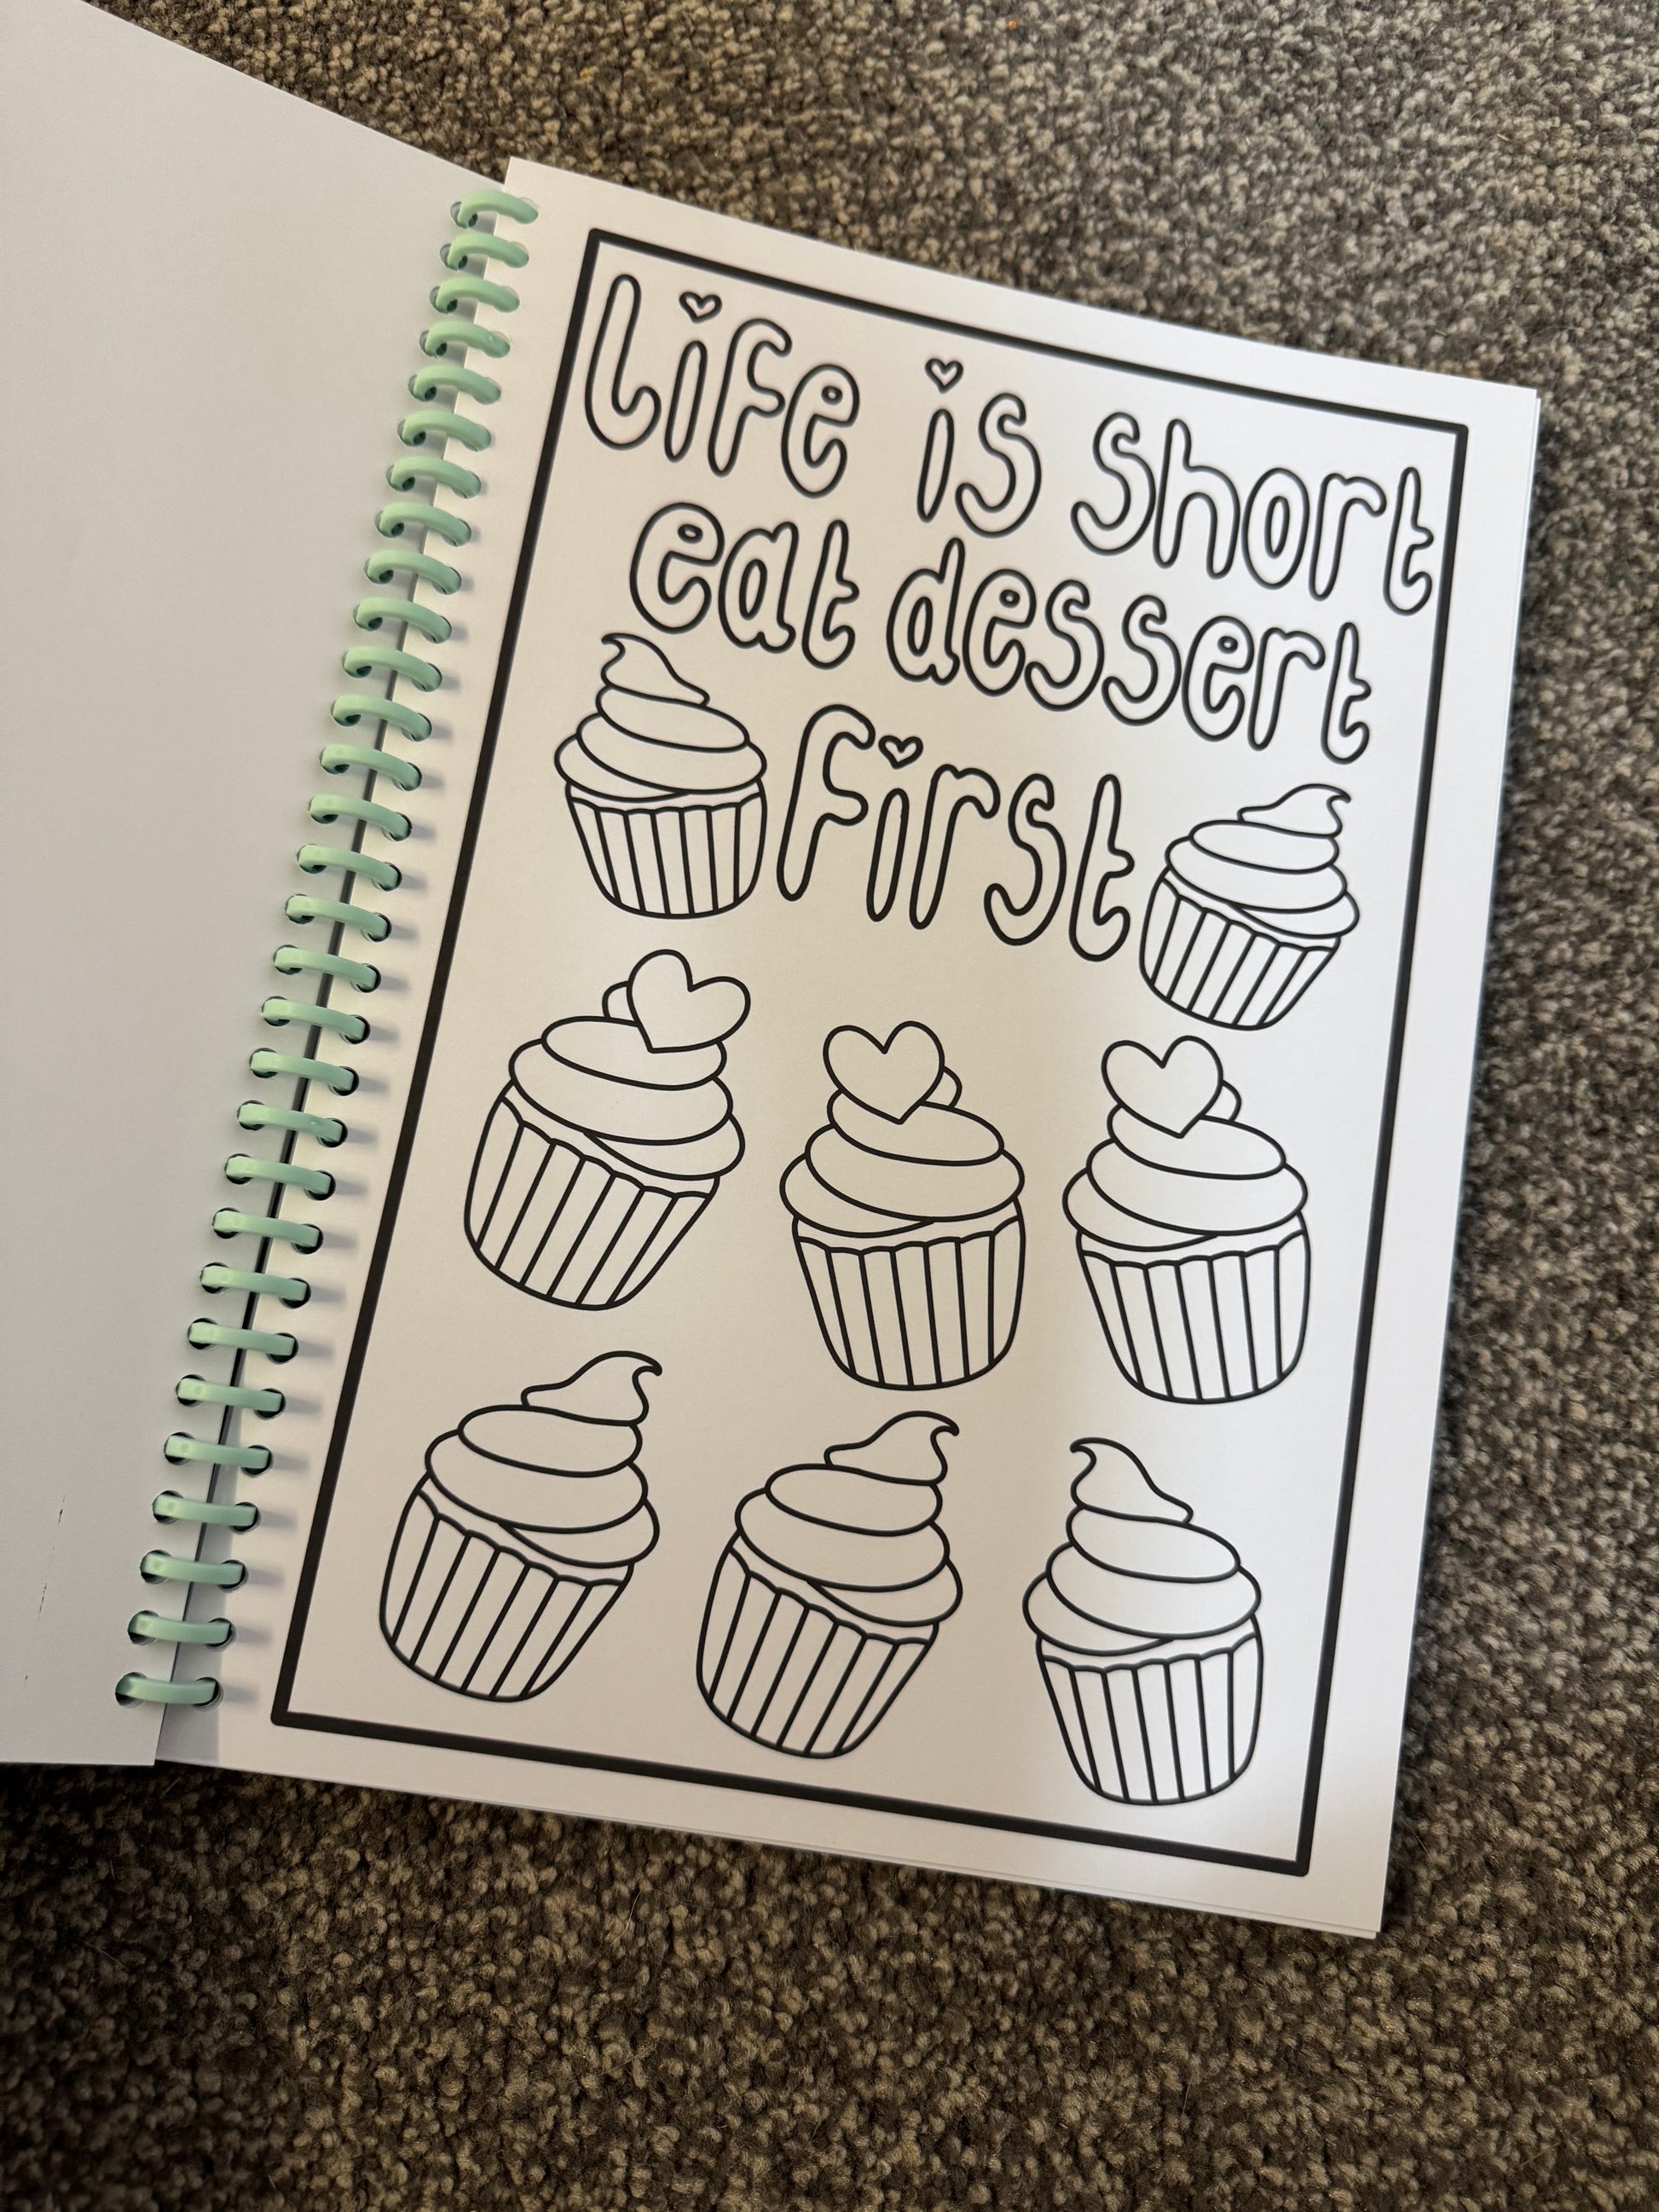 Life is short
eat dessert
first